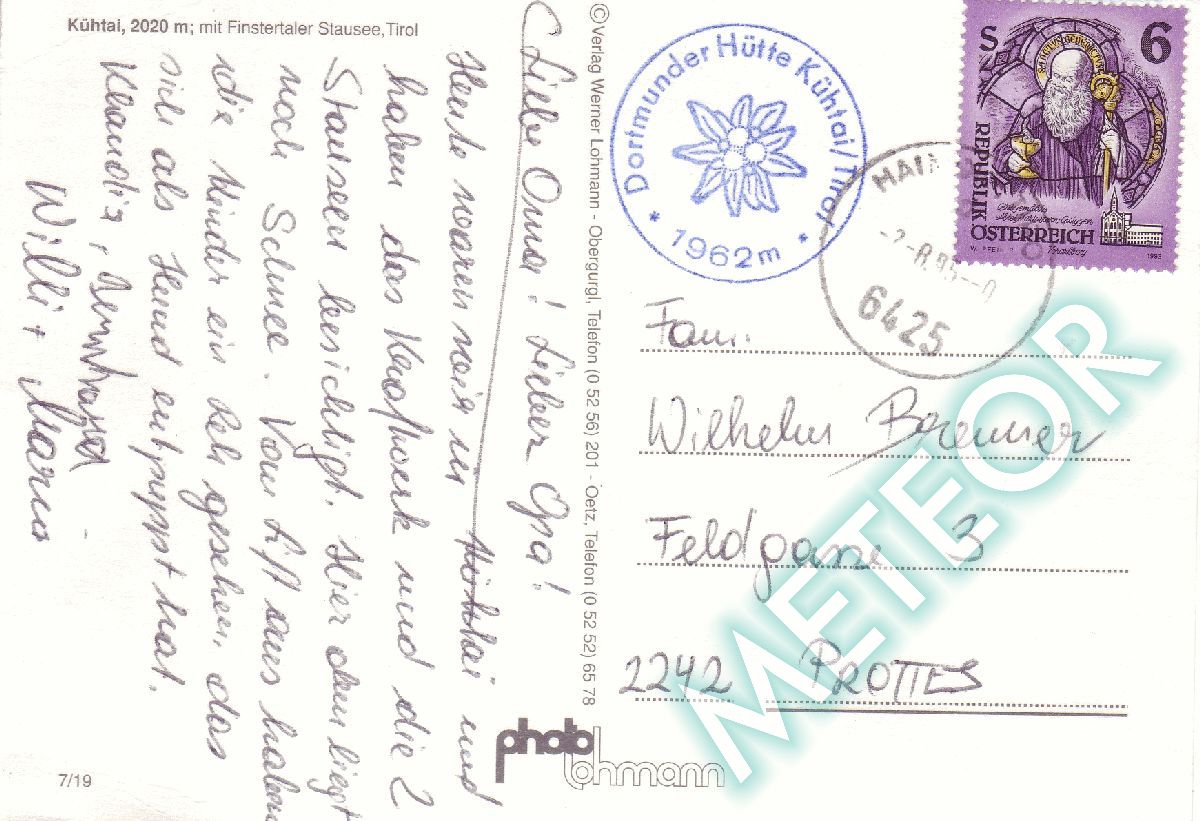 Kühtai, 2020 m; mit Finstertaler Stausee, Tirol
Liebe Oma! Lieber Opa!
Heute waren wir in Kühtai und
haben das Kraftwerk und die 2
Stauseen besichtigt. Hier oben liegt
noch Schnee. Vom Lift aus haben
die Kinder ein Reh gesehen, das
sich als Hund entpuppt hat.
Klaudia, Bernhard
Willi + Maria
7/19
©Verlag Werner Lohmann - Obergurgl, Telefon (0 52 56) 201 - Oetz, Telefon (0 52 52) 65 78
photo
lohmann
Dortmunder Hütte Kühtai/Tirol
* 1962m *
HAI
6425
S 6
REPUBLIK
ÖSTERREICH
1993
Fam.
Wilhelm Brenner
Feldgasse 3
2242 PROTTES
METEOR